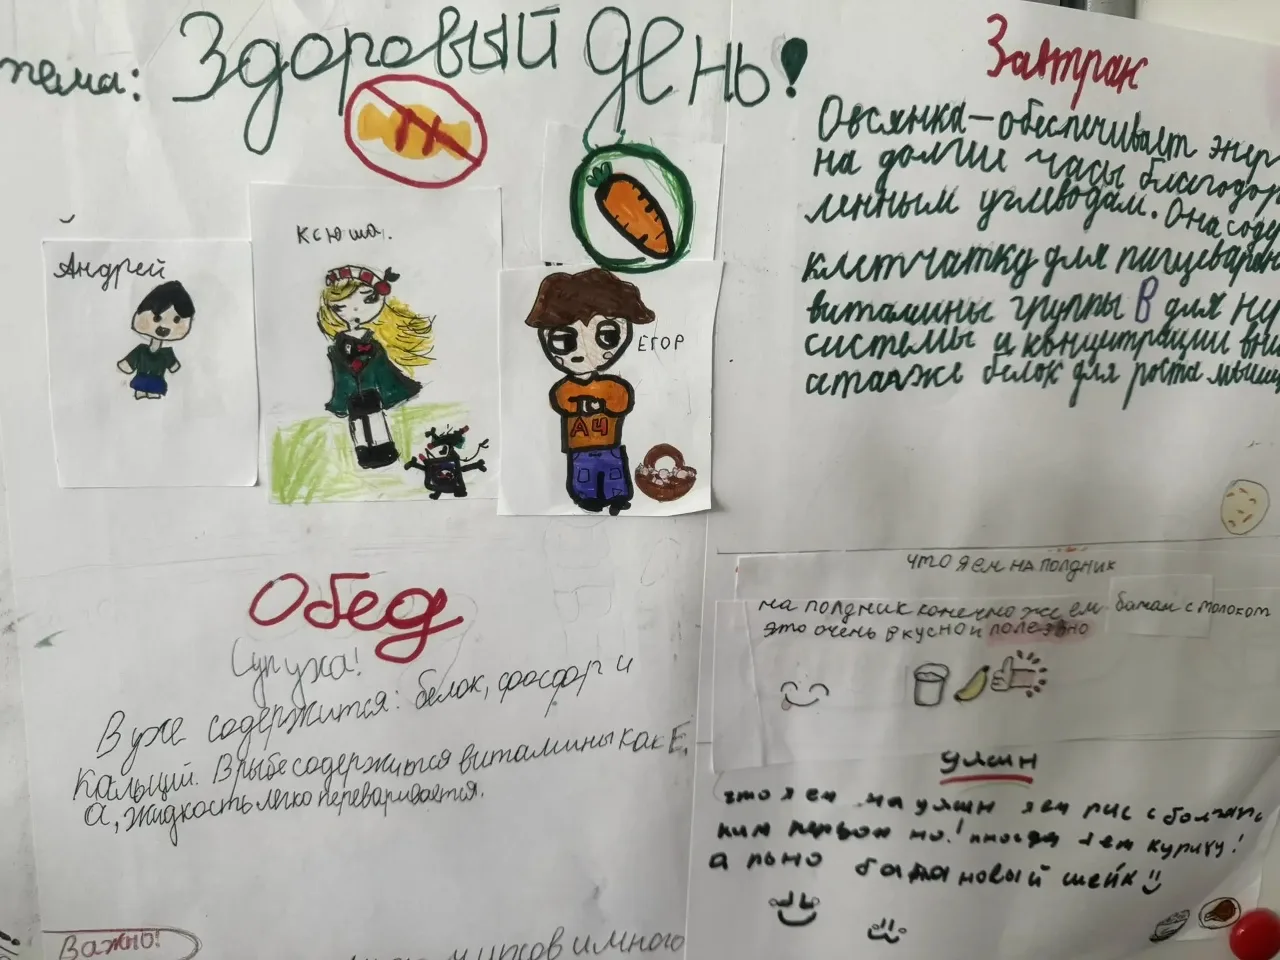 тема: Здоровый День!
Андрей
Ксюша.
ЕГОР
АЧ
Завтрак
Овсянка — обеспечивает энер
на долгие часы благодар
ленным углеводам. Она соде
клетчатку для пищеварен
витамины группы B для не
системы и концитрации вни
а также белок для роста мышц
Обед
Суп уха!
В ухе содержится: белок, фосфор и
кальций. В рыбе содержится витамины как Е,
а, жидкость легко переваривается.
Важно!
и много
что я ем на полдник
на полдник конечно же ем банан с молоком
это очень вкусно и полезно
ужин
что я ем на ужин я ем рис с болгарс
ким перцом но! иногда я ем курицу!
а пью банановый шейк